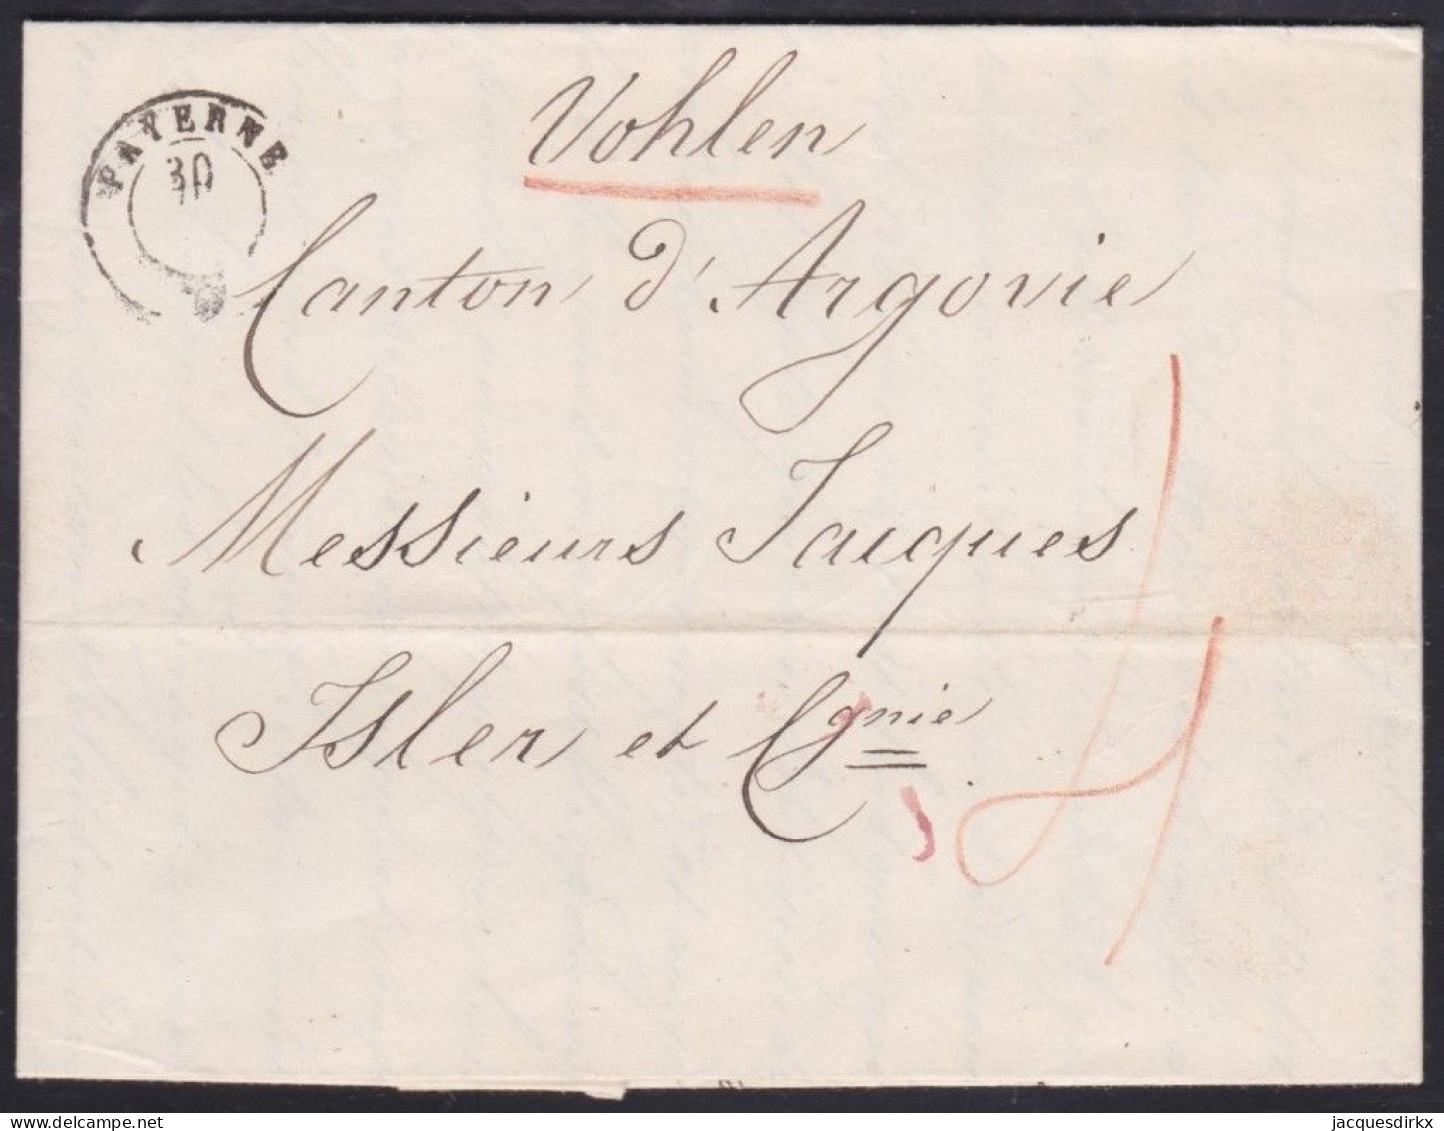 PAYERNE
30
Vohlen
Canton d'Argovie
Messieurs Jaiques
Isler et Cgnie
4
jacquesdirkx